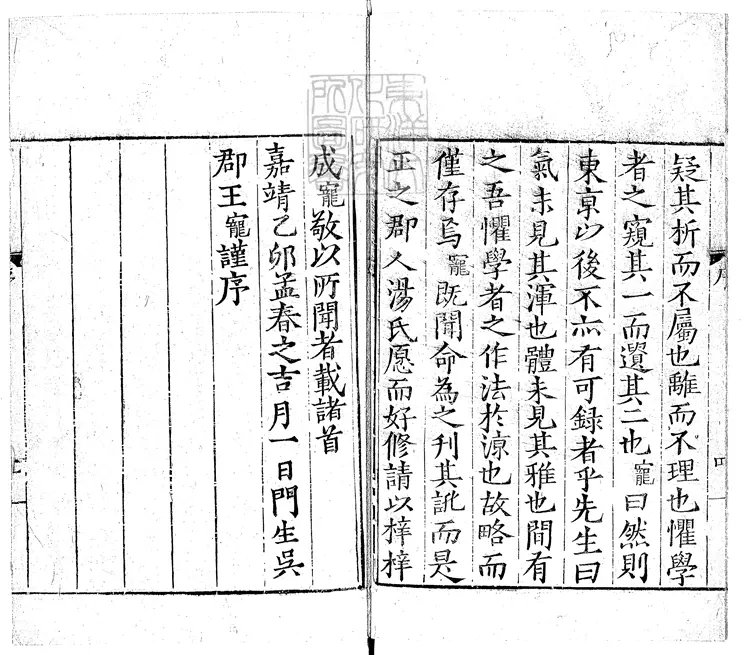 疑其析而不屬也離而不理也懼學
者之窺其一而遺其二也寵曰然則
東京以後不亦有可録者乎先生曰
氣未見其渾也體未見其雅也間有
之吾懼學者之作法於涼也故略而
僅存焉寵既聞命為之刊其訛而是
正之郡人湯氏愿而好修請以梓梓
成寵敬以所聞者載諸首
嘉靖乙卯孟春之吉月一日門生吳
郡王寵謹序
序
四